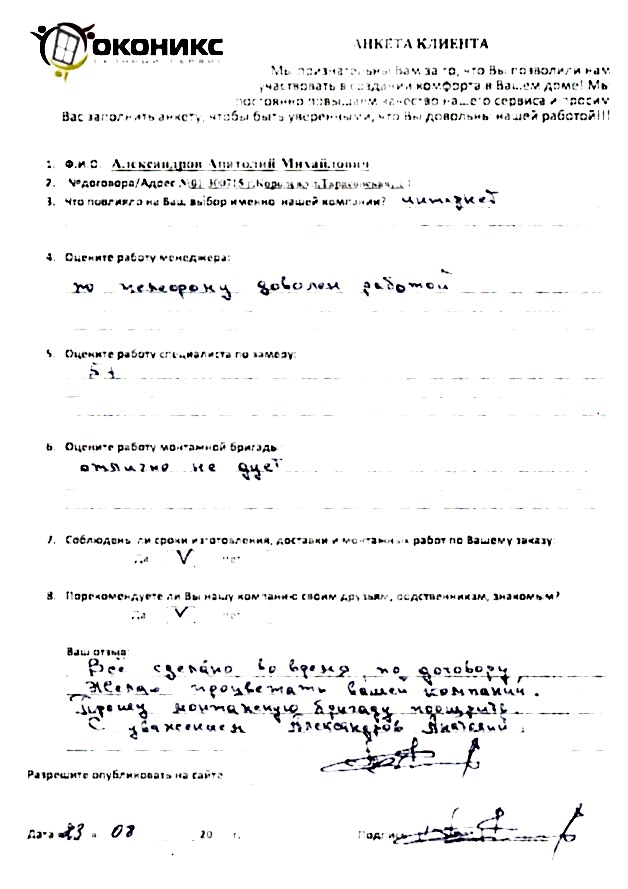 ОКОНИКС
ОКОННЫЙ СЕРВИС
АНКЕТА КЛИЕНТА
Мы признательны Вам за то, что Вы позволили нам
участвовать в создании комфорта в Вашем доме! Мы
постоянно повышаем качество нашего сервиса и просим
Вас заполнить анкету, чтобы быть уверенными, что Вы довольны нашей работой!!!
1. Ф.И.О. Александров Анатолий Михайлович
2. №договора/Адрес
3. Что повлияло на Ваш выбор именно нашей компании?
4. Оцените работу менеджера:
по телефону доволен работой
5. Оцените работу специалиста по замеру:
5+
6. Оцените работу монтажной бригады:
отлично не дует
7. Соблюдены ли сроки изготовления, доставки и монтажных работ по Вашему заказу:
Да V Нет
8. Порекомендуете ли Вы нашу компанию своим друзьям, родственникам, знакомым?
Да V Нет
Ваш отзыв:
Всё сделано во время по договору,
Желаю процветать вашей компании.
Прошу монтажную бригаду поощрить.
С уважением Александров Анатолий.
Разрешите опубликовать на сайте
Дата 23 08 20 г. Подпись